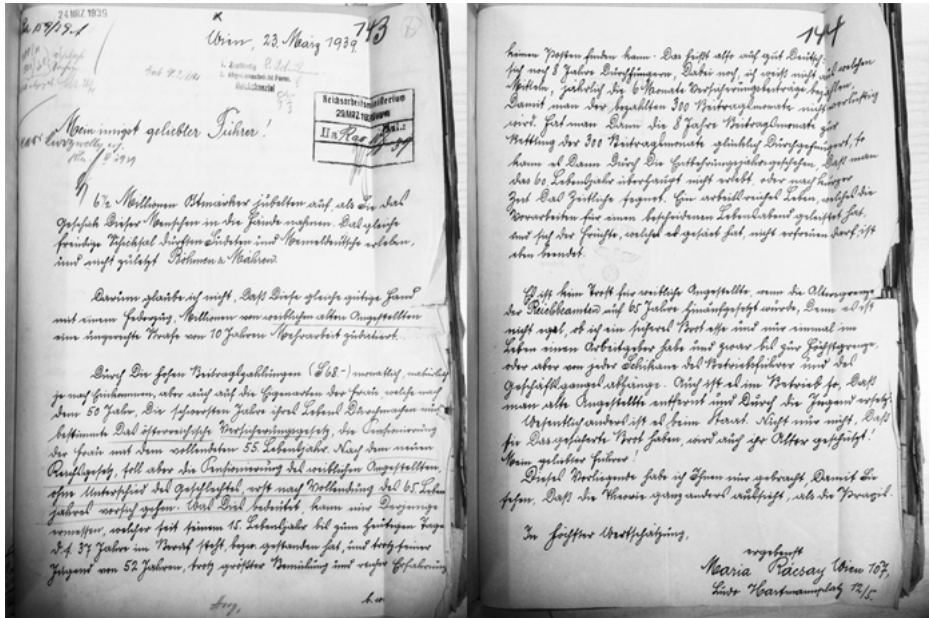 24. MRZ. 1939
143
Wien, 23. März 1939.
Reichsarbeitsministerium
29. MRZ. 1939
IIa
39
Mein innigst geliebter Führer!
6½ Millionen Ostmärker jubelten auf, als Sie das
Geschick dieser Menschen in die Hände nahmen. Das gleiche
freudige Schicksal durften Sudeten und Memeldeutsche erleben,
und nicht zuletzt Böhmen u. Mähren.
Darum glaube ich nicht, daß diese gleiche gütige Hand
mit einem Federzug, Millionen von weiblichen alten Angestellten
eine ungerechte Strafe von 10 Jahren Mehrarbeit zudiktiert.
Durch die hohen Beitragszahlungen (S 68.-) monatlich, natürlich
je nach Einkommen, aber auch auf die Eigenarten der Frau, welche nach
dem 50 Jahr, die schwersten Jahre ihres Lebens durchmachen muß
bestimmte das österreichische Versicherungsgesetz, die Pensionierung
der Frau mit dem vollendeten 55. Lebensjahr. Nach dem neuen
Reichsgesetz, soll aber die Pensionierung des weiblichen Angestellten,
ohne Unterschied des Geschlechtes, erst nach Vollendung des 65. Lebens
jahres vor sich gehen. Was dies bedeutet, kann nur derjenige
ermessen, welcher seit seinem 15. Lebensjahr bis zum heutigen Tage
d. h. 37 Jahre im Beruf steht, bezw. gestanden hat, und trotz seiner
Jugend von 52 Jahren, trotz größter Bemühung und reicher Erfahrung
b. w.
144
keinen Posten finden kann. Das heißt also auf gut Deutsch:
sich noch 8 Jahre durchhungern, dabei noch, ich weiß nicht aus welchen
Mitteln, jährlich die 6 Monate Versicherungsbeiträge bezahlen,
damit man der bezahlten 300 Beitragsmonate nicht verlustig
wird. Hat man dann die 8 Jahre Beitragsmonate zur
Rettung der 300 Beitragsmonate glücklich durchgehungert, so
kann es dann durch die Entbehrungsjahre geschehen, daß man
das 60. Lebensjahr überhaupt nicht erlebt, oder nach kurzer
Zeit das Zeitliche segnet. Ein arbeitsreiches Leben, welches die
Vorarbeiten für einen bescheidenen Lebensabend geleistet hat,
und sich der Früchte, welches es gesäet hat, nicht erfreuen darf, ist
eben beendet.
Es ist kein Trost für weibliche Angestellte, wenn die Altersgrenze
der Reichsbeamten auf 65 Jahre hinaufgesetzt wurde, denn es ist
nicht egal, ob ich ein sicheres Brot esse und nur einmal im
Leben einen Arbeitgeber habe und zwar bis zur Höchstgrenze,
oder aber von jeder Schikane des Betriebsführer und des
Geschäftsganges abhänge. Auch ist es im Betrieb so, daß
man alte Angestellte entfernt und durch die Jugend ersetzt.
Wesentlich anders ist es beim Staat. Nicht nur nicht, daß
sie das gesicherte Brot haben, wird auch ihr Alter geschützt!
Mein geliebter Führer!
Dieses Vorliegende habe ich Ihnen nur gebracht, damit Sie
sehen, daß die Theorie ganz anders aussieht, als die Praxis.
In höchster Wertschätzung,
ergebenst
Maria Rácsay Wien 107,
Ludo Hartmannplatz 12/5.